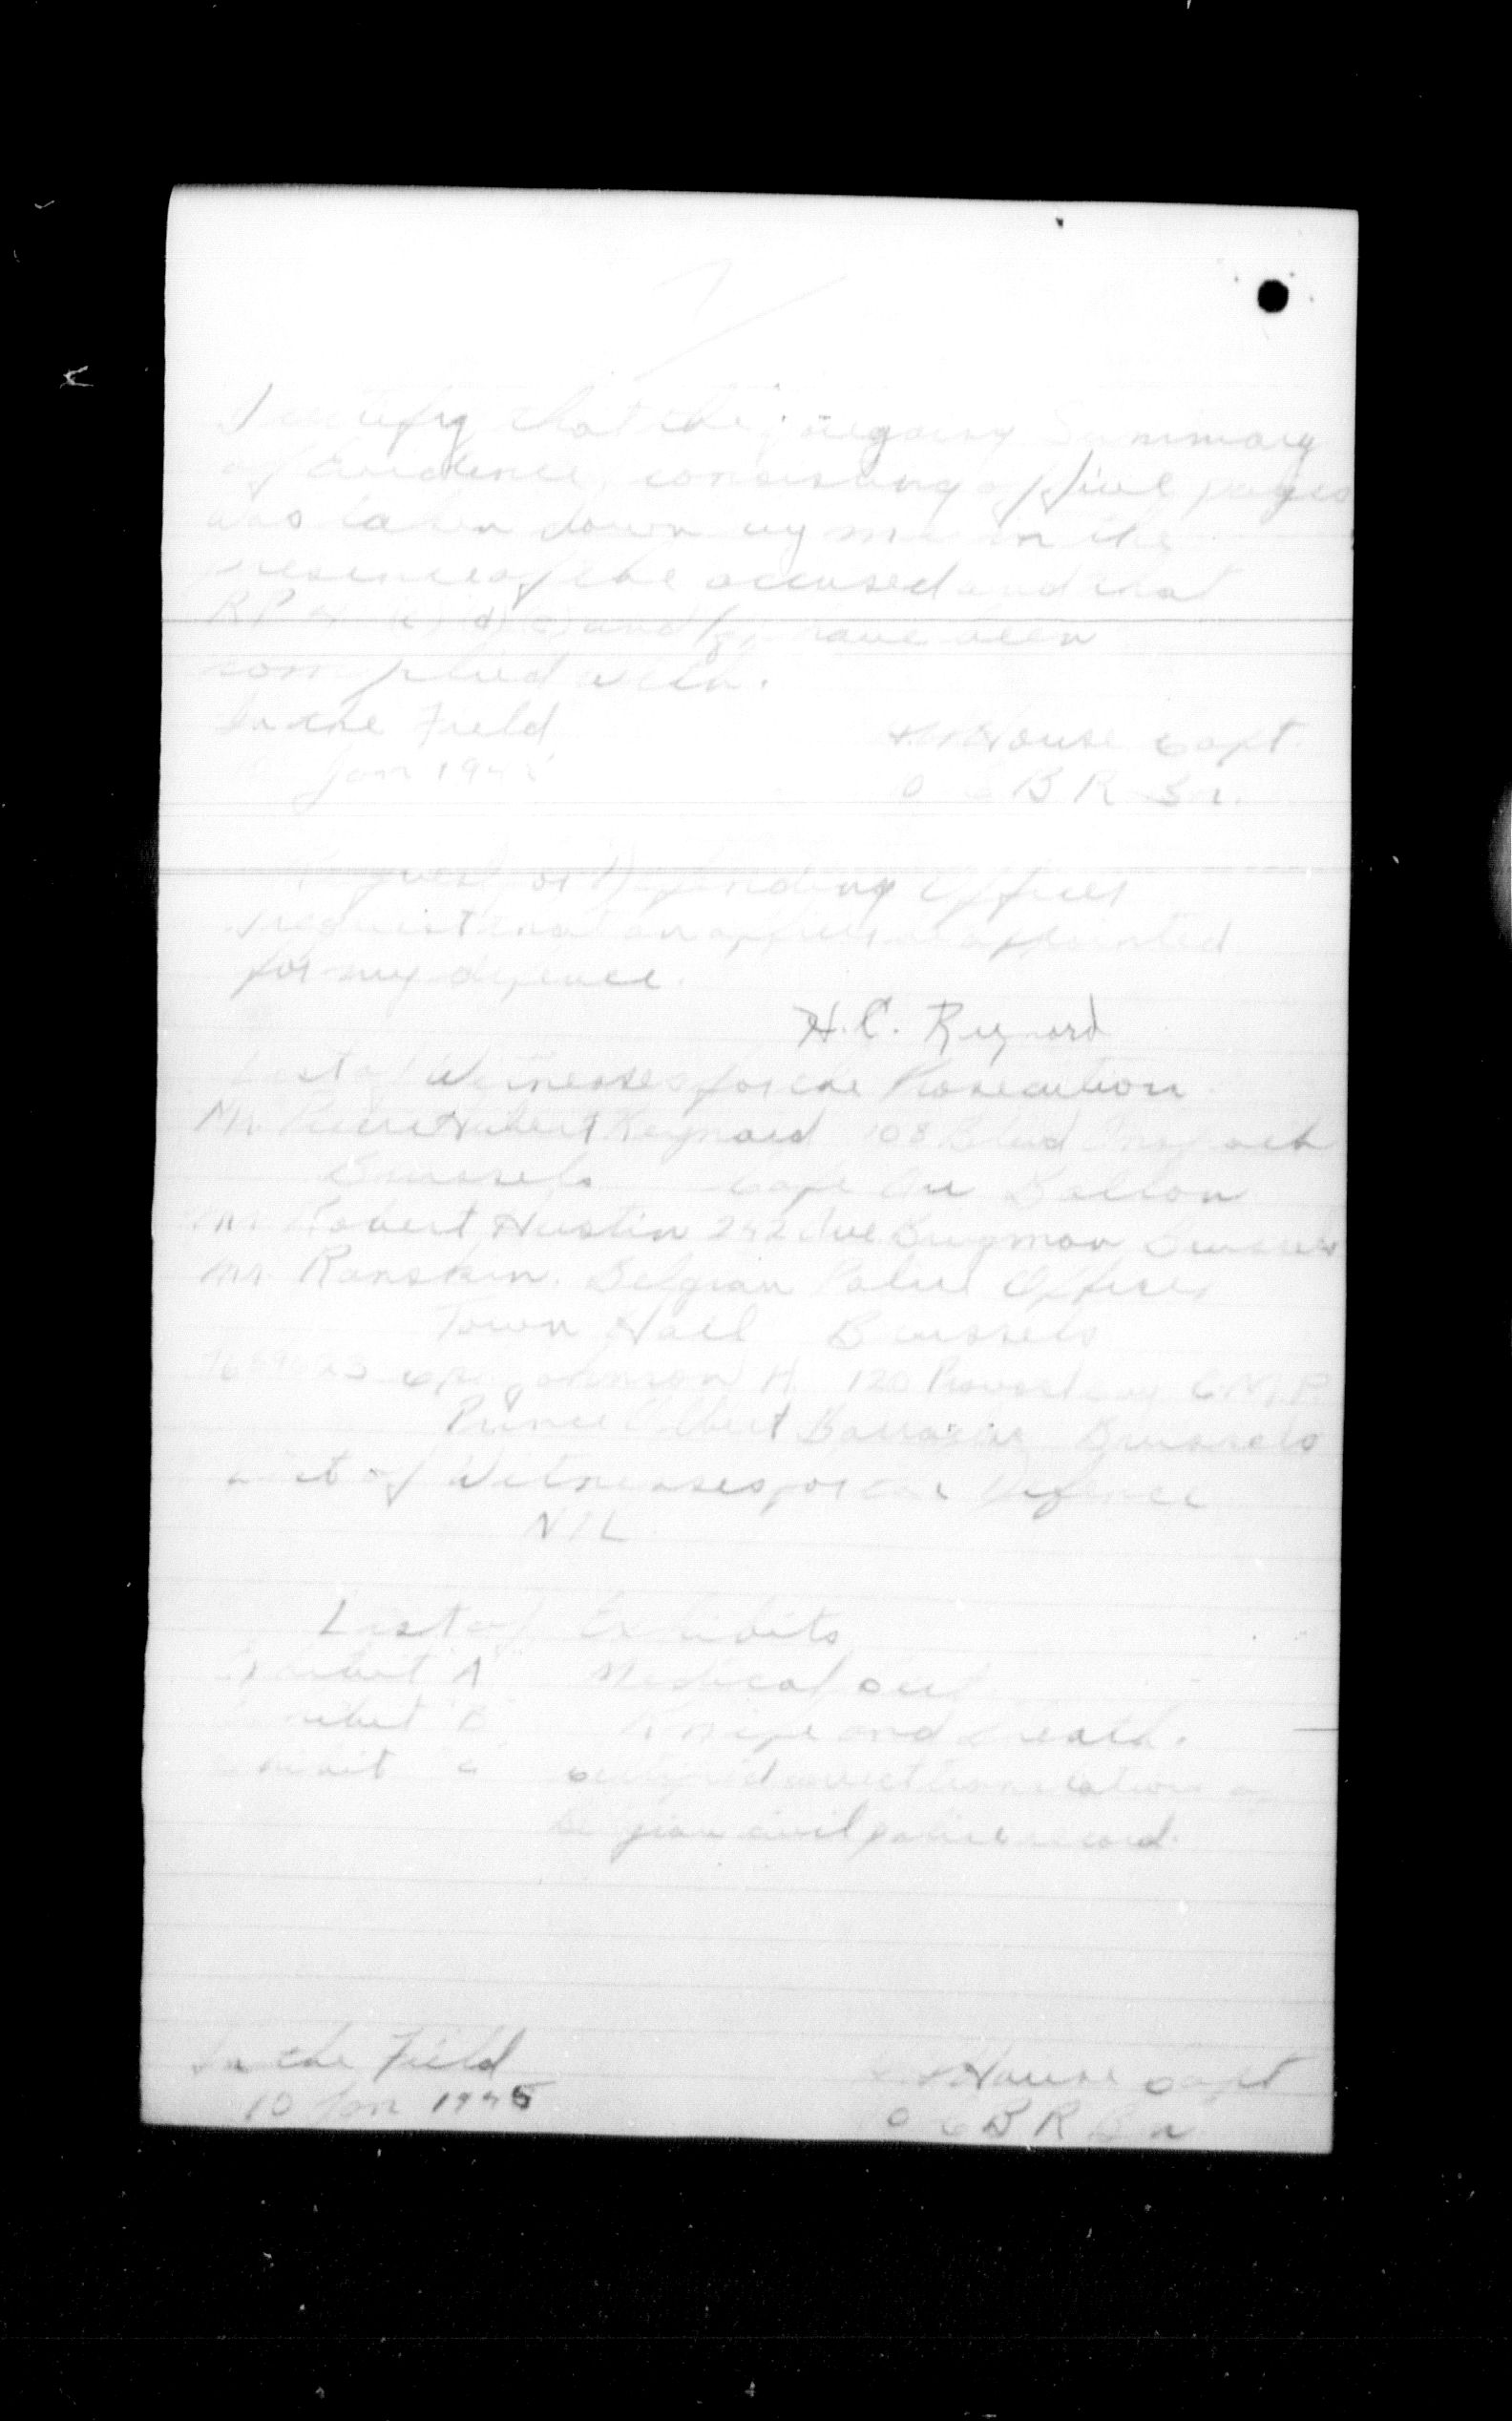 I certify that the foregoing Summary
of Evidence, consisting of five pages
was taken down by me in the
presence of the accused and that
RP 4 (c) (d) (e) and have been
complied with.
In the Field House Capt
Jan 194 B R
Request for Defending Officer
I request that an officer be appointed
for my defence.
H.C. Reynard
List of Witnesses for the Prosecution
Mr. Hubert Reynard 108 Blvd
Brussels Cafe Au Ballon
Mr. Robert Hustin 242 Ave Brugman Brussels
Mr. Ranskin. Belgian Police Officer
Town Hall Brussels
Johnson H. 120 Provost Coy C.M.P.
Prince Albert Barracks Brussels
List of Witnesses for the Defence
NIL
List of Exhibits
Exhibit "A" Medical
Exhibit "B" Knife and sheath.
Exhibit C translation of
Belgian civil police record.
In the Field House Capt
10 Jan 1945 B R